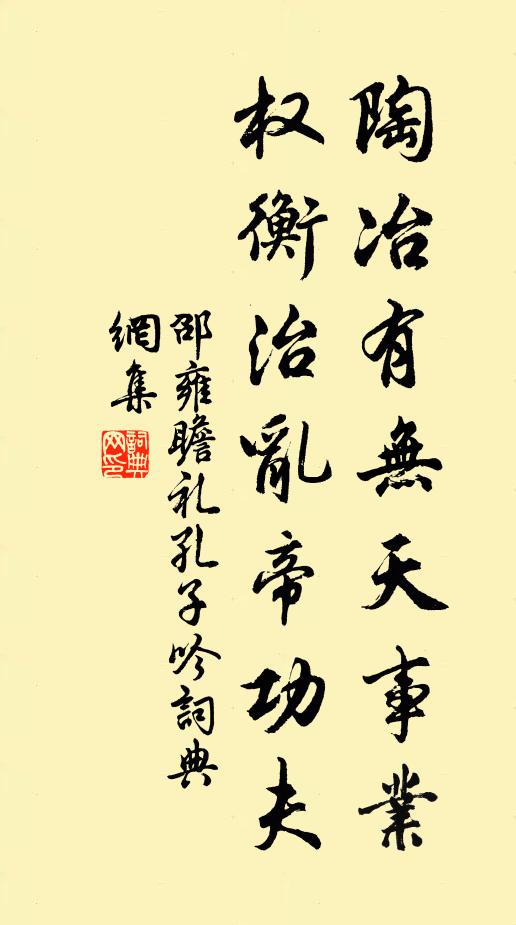 陶冶有無天事業
权衡治亂帝功夫
邵雍瞻礼孔子吟詞典
網集
詞典網印